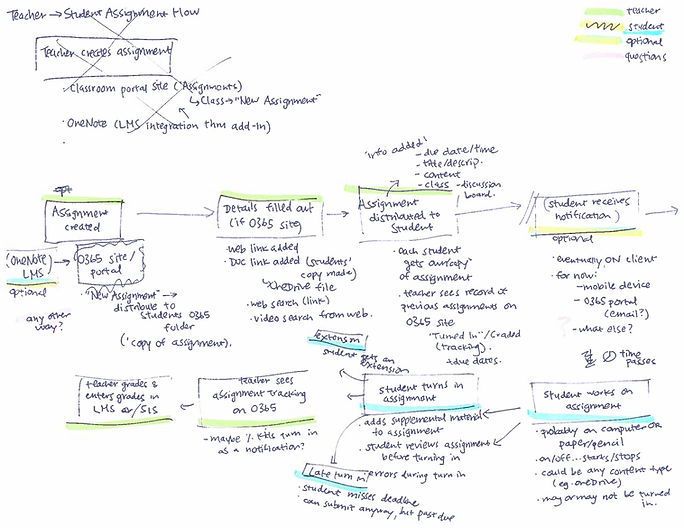 Teacher → Student Assignment Flow
Teacher creates assignment
• Classroom portal site (Assignments)
↳ Class → "New Assignment"
• OneNote (LMS integration thru add-in)
teacher
student
optional
questions
Assignment created
(OneNote) LMS
optional
any other way?
O365 site/ portal
"New Assignment" →
distribute to
students O365
folder
(*copy of assignment).
Details filled out
(if O365 site)
• web link added
• Doc link added (students' copy made)
↳ OneDrive file
• web search (link)
• video search from web.
"info added"
- due date/time
- title/descrip.
- content
- class - discussion board.
Assignment
distributed to
Student
• each student
gets own "copy"
of assignment
• teacher sees record of
previous assignments on
O365 site
"Turned In"/Graded
(tracking).
+ due dates.
(student receives
notification)
optional
• eventually ON client
• for now:
- mobile device
- O365 portal
(email?)
- what else?
time
passes
student works on
assignment
• probably on computer OR
paper/pencil
• on/off...starts/stops
• could be any content type
(eg. oneDrive)
• may or may not be turned
in.
student turns in
assignment
• adds supplemental material
to assignment
• student reviews assignment
before turning in
• errors during turn in
extension
student gets an
extension
Late turn in
• student misses deadline
• can submit anyway, but past due
teacher sees
assignment tracking
on O365
- maybe % kids turn in
as a notification?
teacher grades &
enters grades in
LMS or/SIS